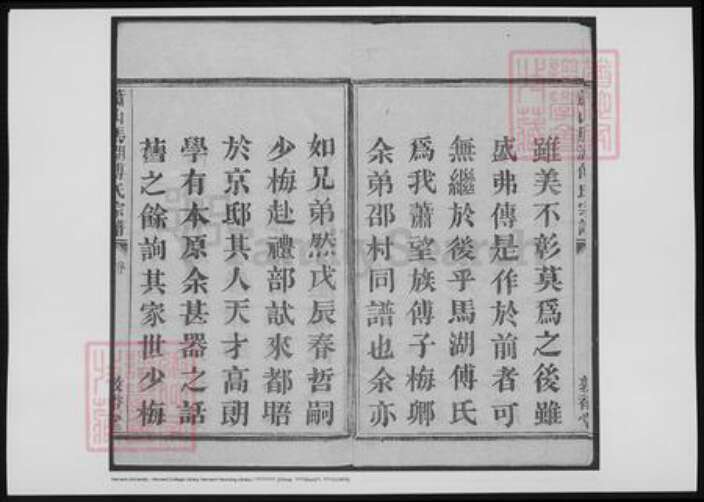 雖美不彰莫爲之後雖
盛弗傳是作於前者可
無繼於後乎馬湖傅氏
爲我蕭望族傅子梅卿
余弟邵村同譜也余亦
如兄弟然戊辰春哲嗣
少梅赴禮部試來都晤
於京邸其人天才高朗
學有本原余甚器之話
舊之餘詢其家世少梅
蕭山馬湖傅氏宗譜
FamilySearch